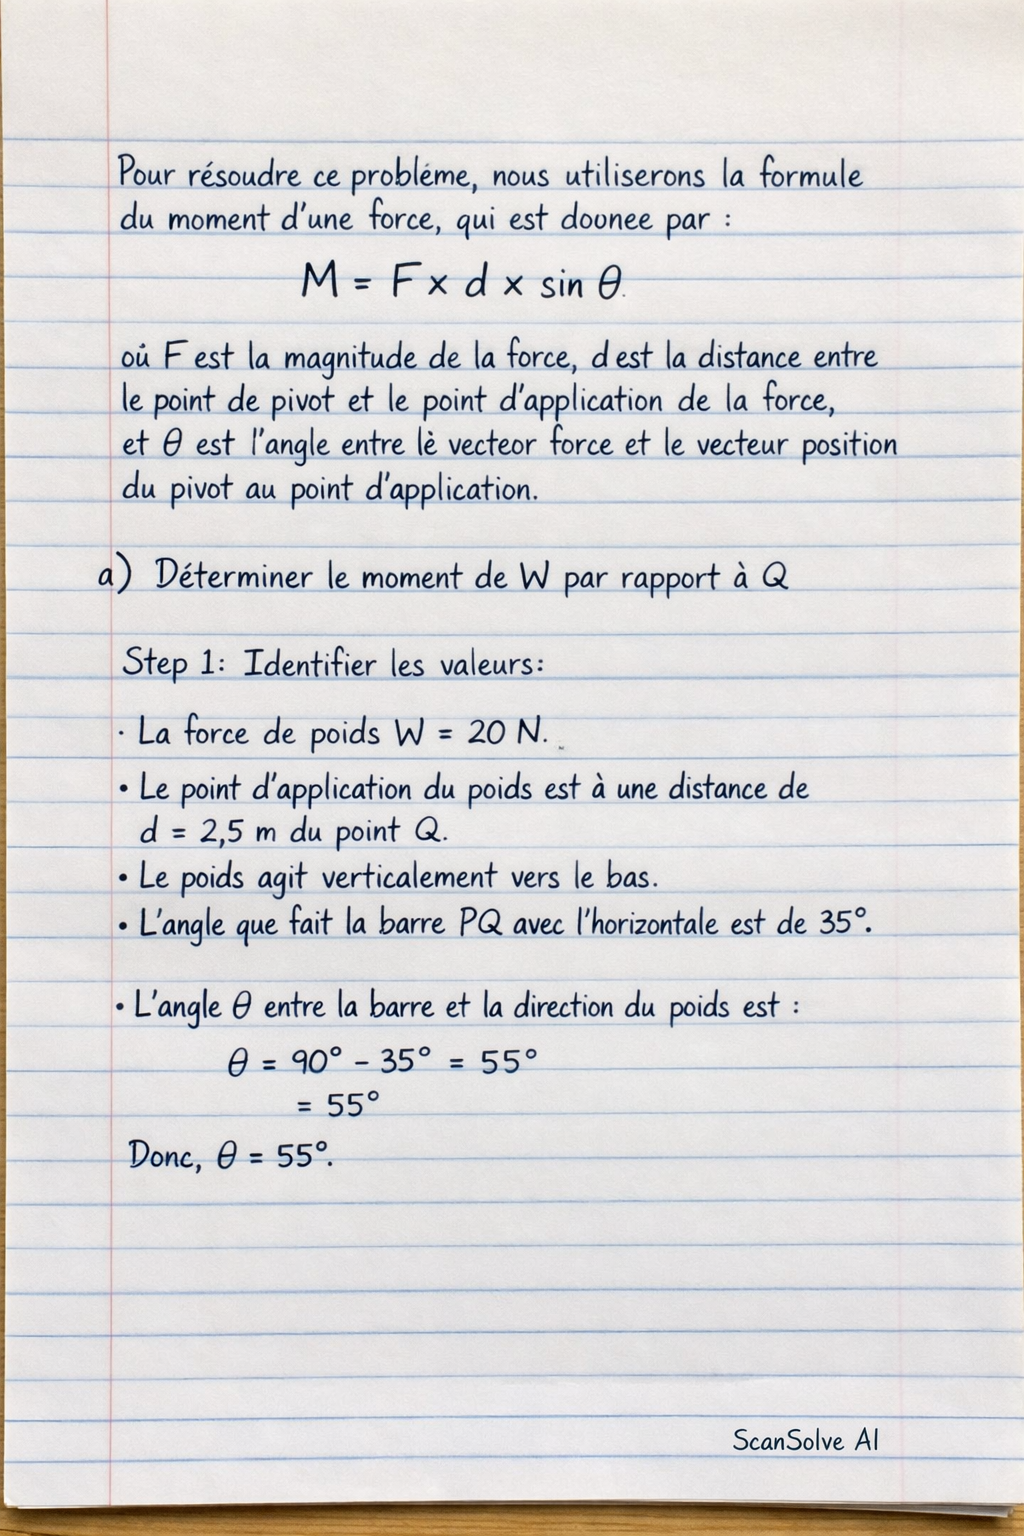 Pour résoudre ce probléme, nous utiliserons la formule
du moment d'une force, qui est dounee par :
M = F x d x sin θ.
oú F est la magnitude de la force, d est la distance entre
le point de pivot et le point d'application de la force,
et θ est l'angle entre lè vecteor force et le vecteur position
du pivot au point d'application.
a) Déterminer le moment de W par rapport à Q
Step 1: Identifier les valeurs:
· La force de poids W = 20 N.
• Le point d'application du poids est à une distance de
d = 2,5 m du point Q.
• Le poids agit verticalement vers le bas.
• L'angle que fait la barre PQ avec l'horizontale est de 35°.
• L'angle θ entre la barre et la direction du poids est :
θ = 90° - 35° = 55°
= 55°
Donc, θ = 55°.
ScanSolve AI